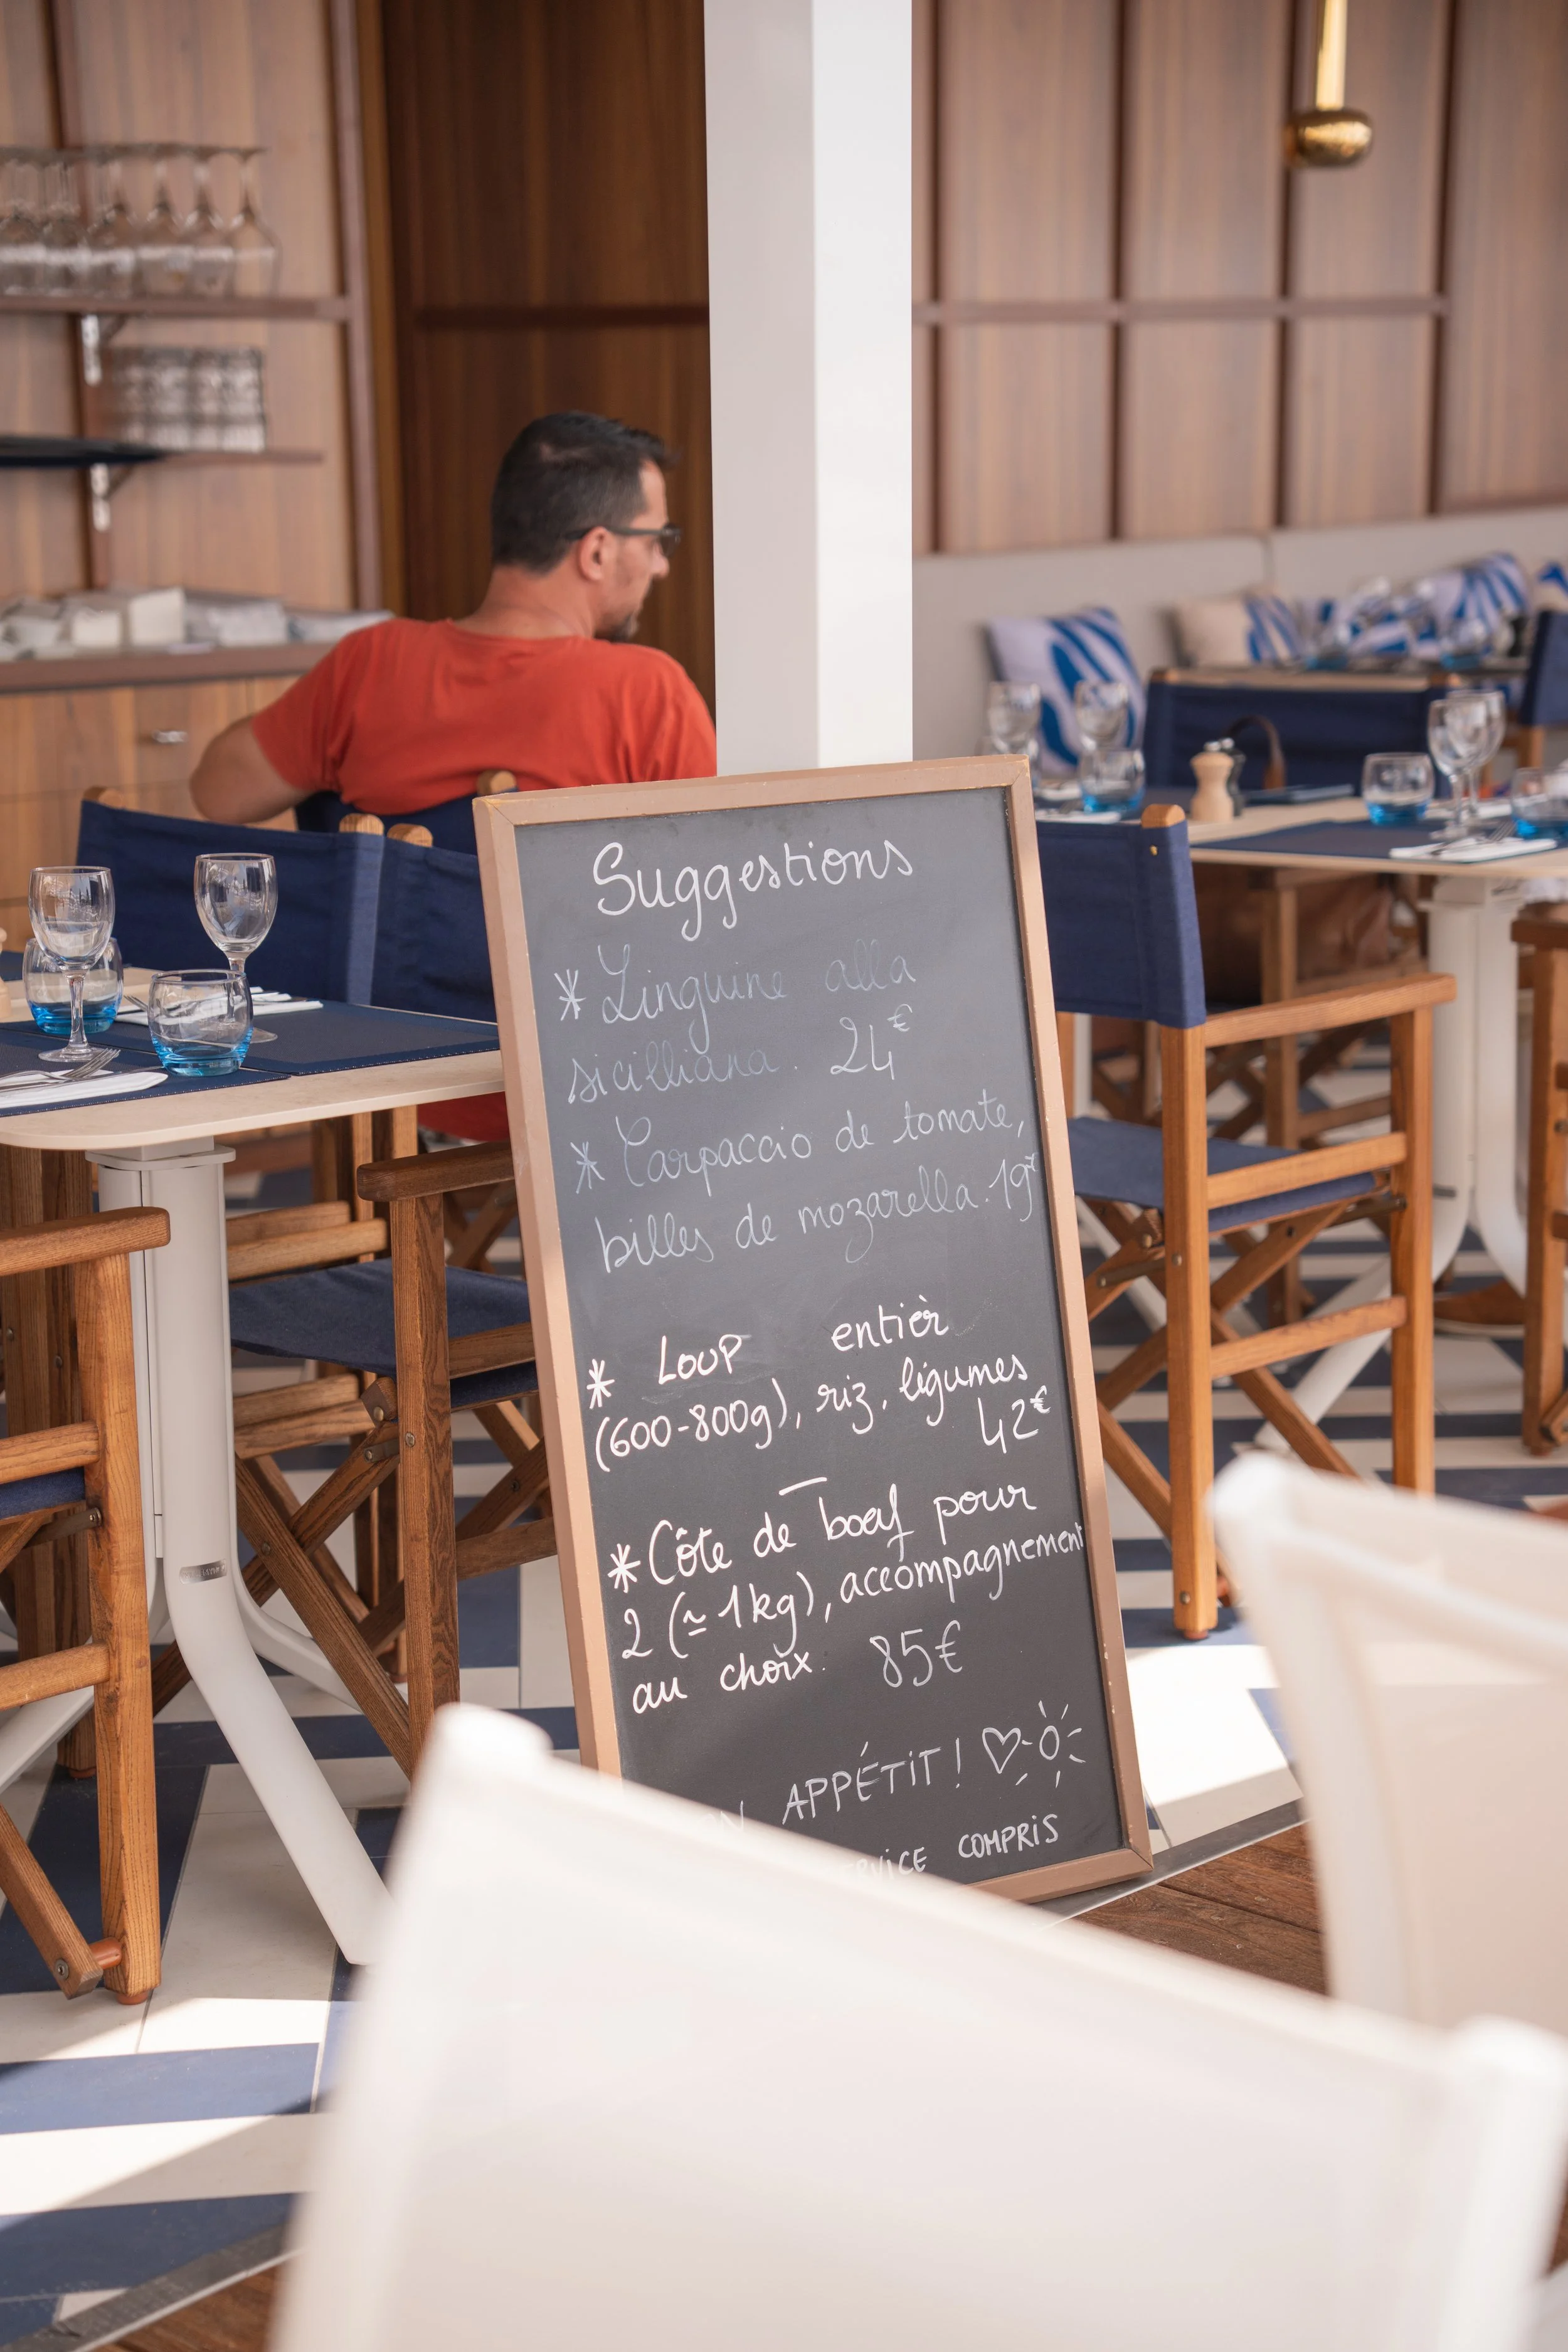 Suggestions
* Linguine alla
sicilliana. 24€
* Carpaccio de tomate,
billes de mozarella. 19€
* LOUP entièr
(600-800g), riz, légumes
42€
* Côte de boeuf pour
2 (≃ 1kg), accompagnement
au choix. 85€
APPÉTIT !
COMPRIS